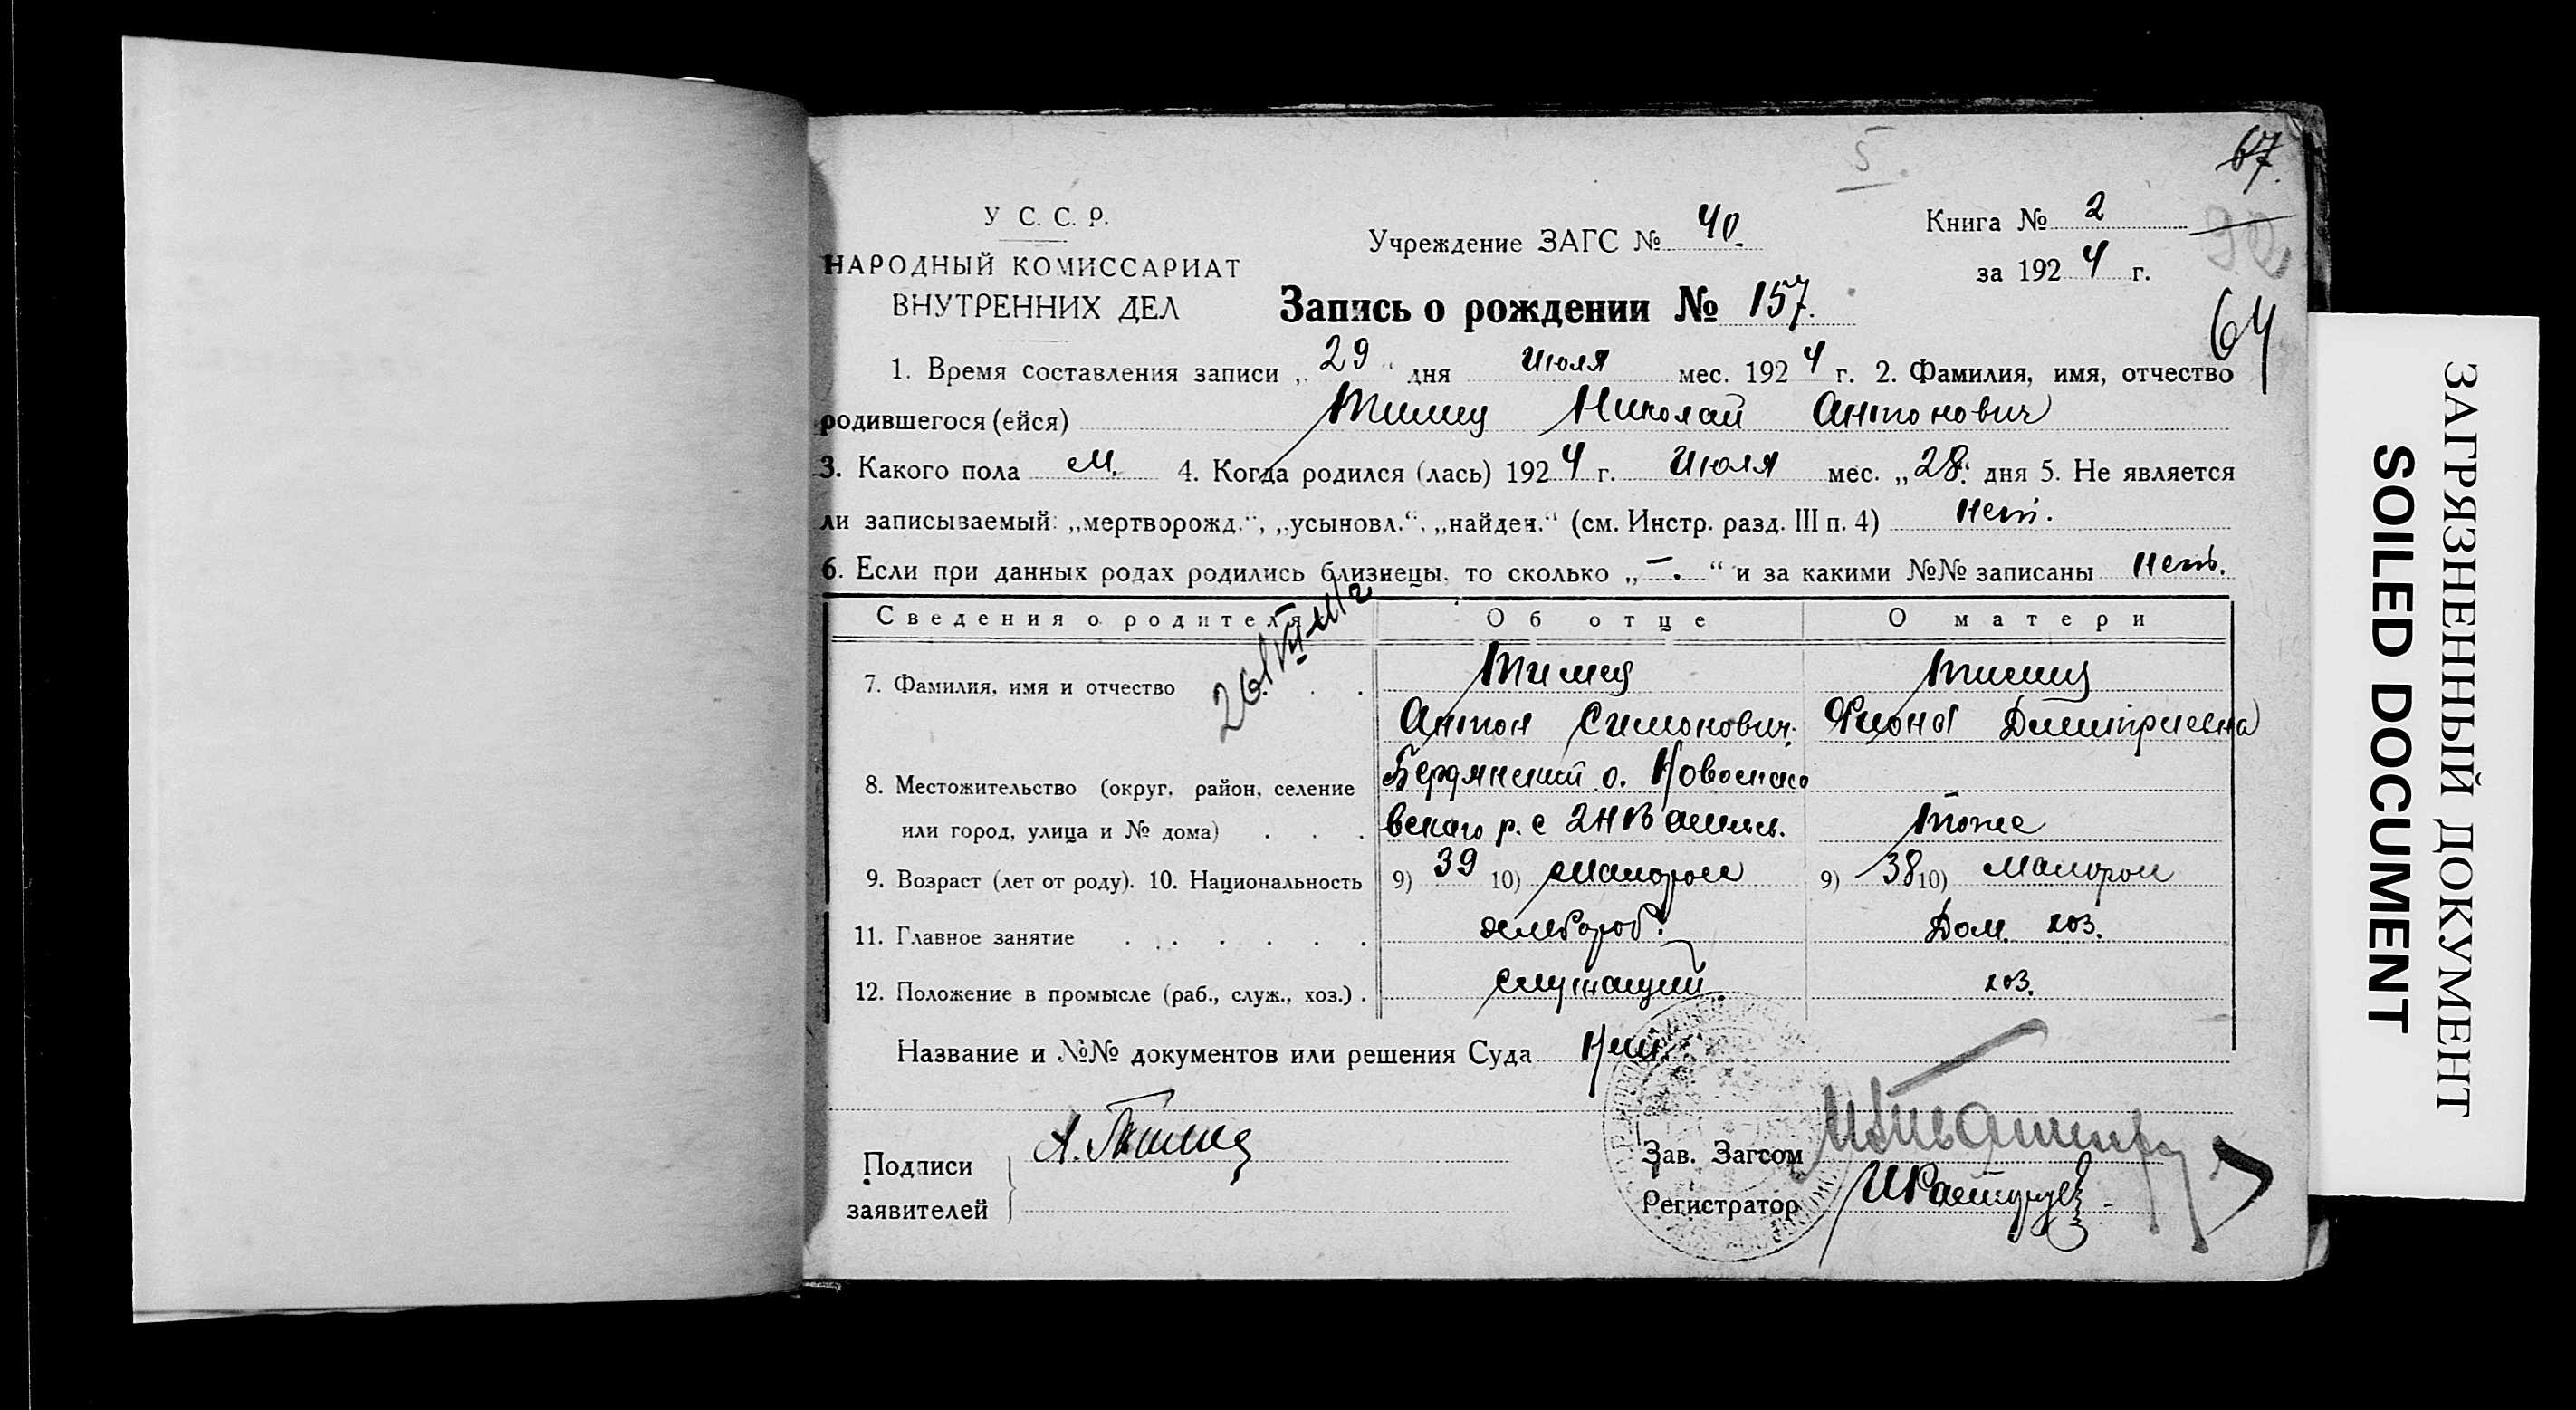 5
67.
У С. С. Р.
НАРОДНЫЙ КОМИССАРИАТ
ВНУТРЕННИХ ДЕЛ
Учреждение ЗАГС № 40.
Книга № 2
за 1924 г.
92
64
Запись о рождении № 157.
1. Время составления записи „ 29 “ дня Июля мес. 1924 г. 2. Фамилия, имя, отчество
родившегося (ейся) Тимец Николай Антонович
3. Какого пола М. 4. Когда родился (лась) 1924 г. Июля мес. „28“ дня 5. Не является
ли записываемый: „мертворожд.“, „усыновл.“, „найден.“ (см. Инстр. разд. III п. 4) нет.
6. Если при данных родах родились близнецы, то сколько „—.“ и за какими №№ записаны нет.
Сведения о родителях Об отце О матери
7. Фамилия, имя и отчество Тимец Тимец
Антон Симонович. Фиона Димитриевна
8. Местожительство (округ, район, селение Бердянский о. Новоспасо
или город, улица и № дома) вского р. с 2 Н Васильев. Тоже
9. Возраст (лет от роду). 10. Национальность 9) 39 10) Малорос 9) 38 10) Малорос
11. Главное занятие хлебороб. Дом. хоз.
12. Положение в промысле (раб., служ., хоз.) служащий. хоз.
Название и №№ документов или решения Суда Нет
Подписи
заявителей
А. Тимец
Зав. Загсом
Регистратор
ЗАГРЯЗНЕННЫЙ ДОКУМЕНТ
SOILED DOCUMENT